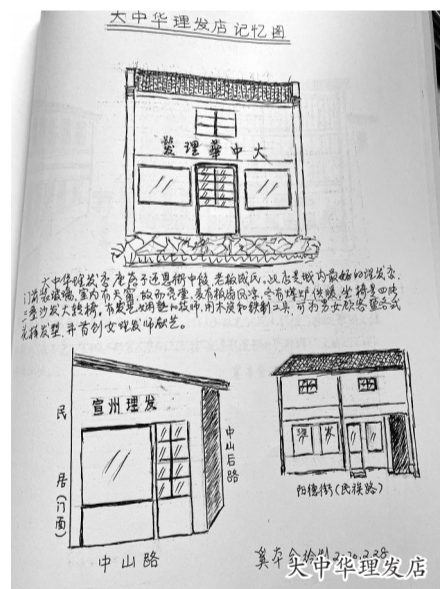 大中华理发店记忆图
大中華理髮
大中华理发店座落于还恩街中段,老板戚氏。此店是城内最好的理发店,
门前装玻璃,室内有天窗,故而亮堂,夏有板扇风凉,冬有煤炉供暖,坐椅是四
三叠沙发大转椅,有发艺娴熟的技师,用和铁制工具,可为女顾客盘各式
花样发型,并首创女理发师献艺。
宣州理发
民居(门面)
中山后路
中山路
理发
阳德街(民族路)
奚本全绘制 2020.2.28
大中华理发店